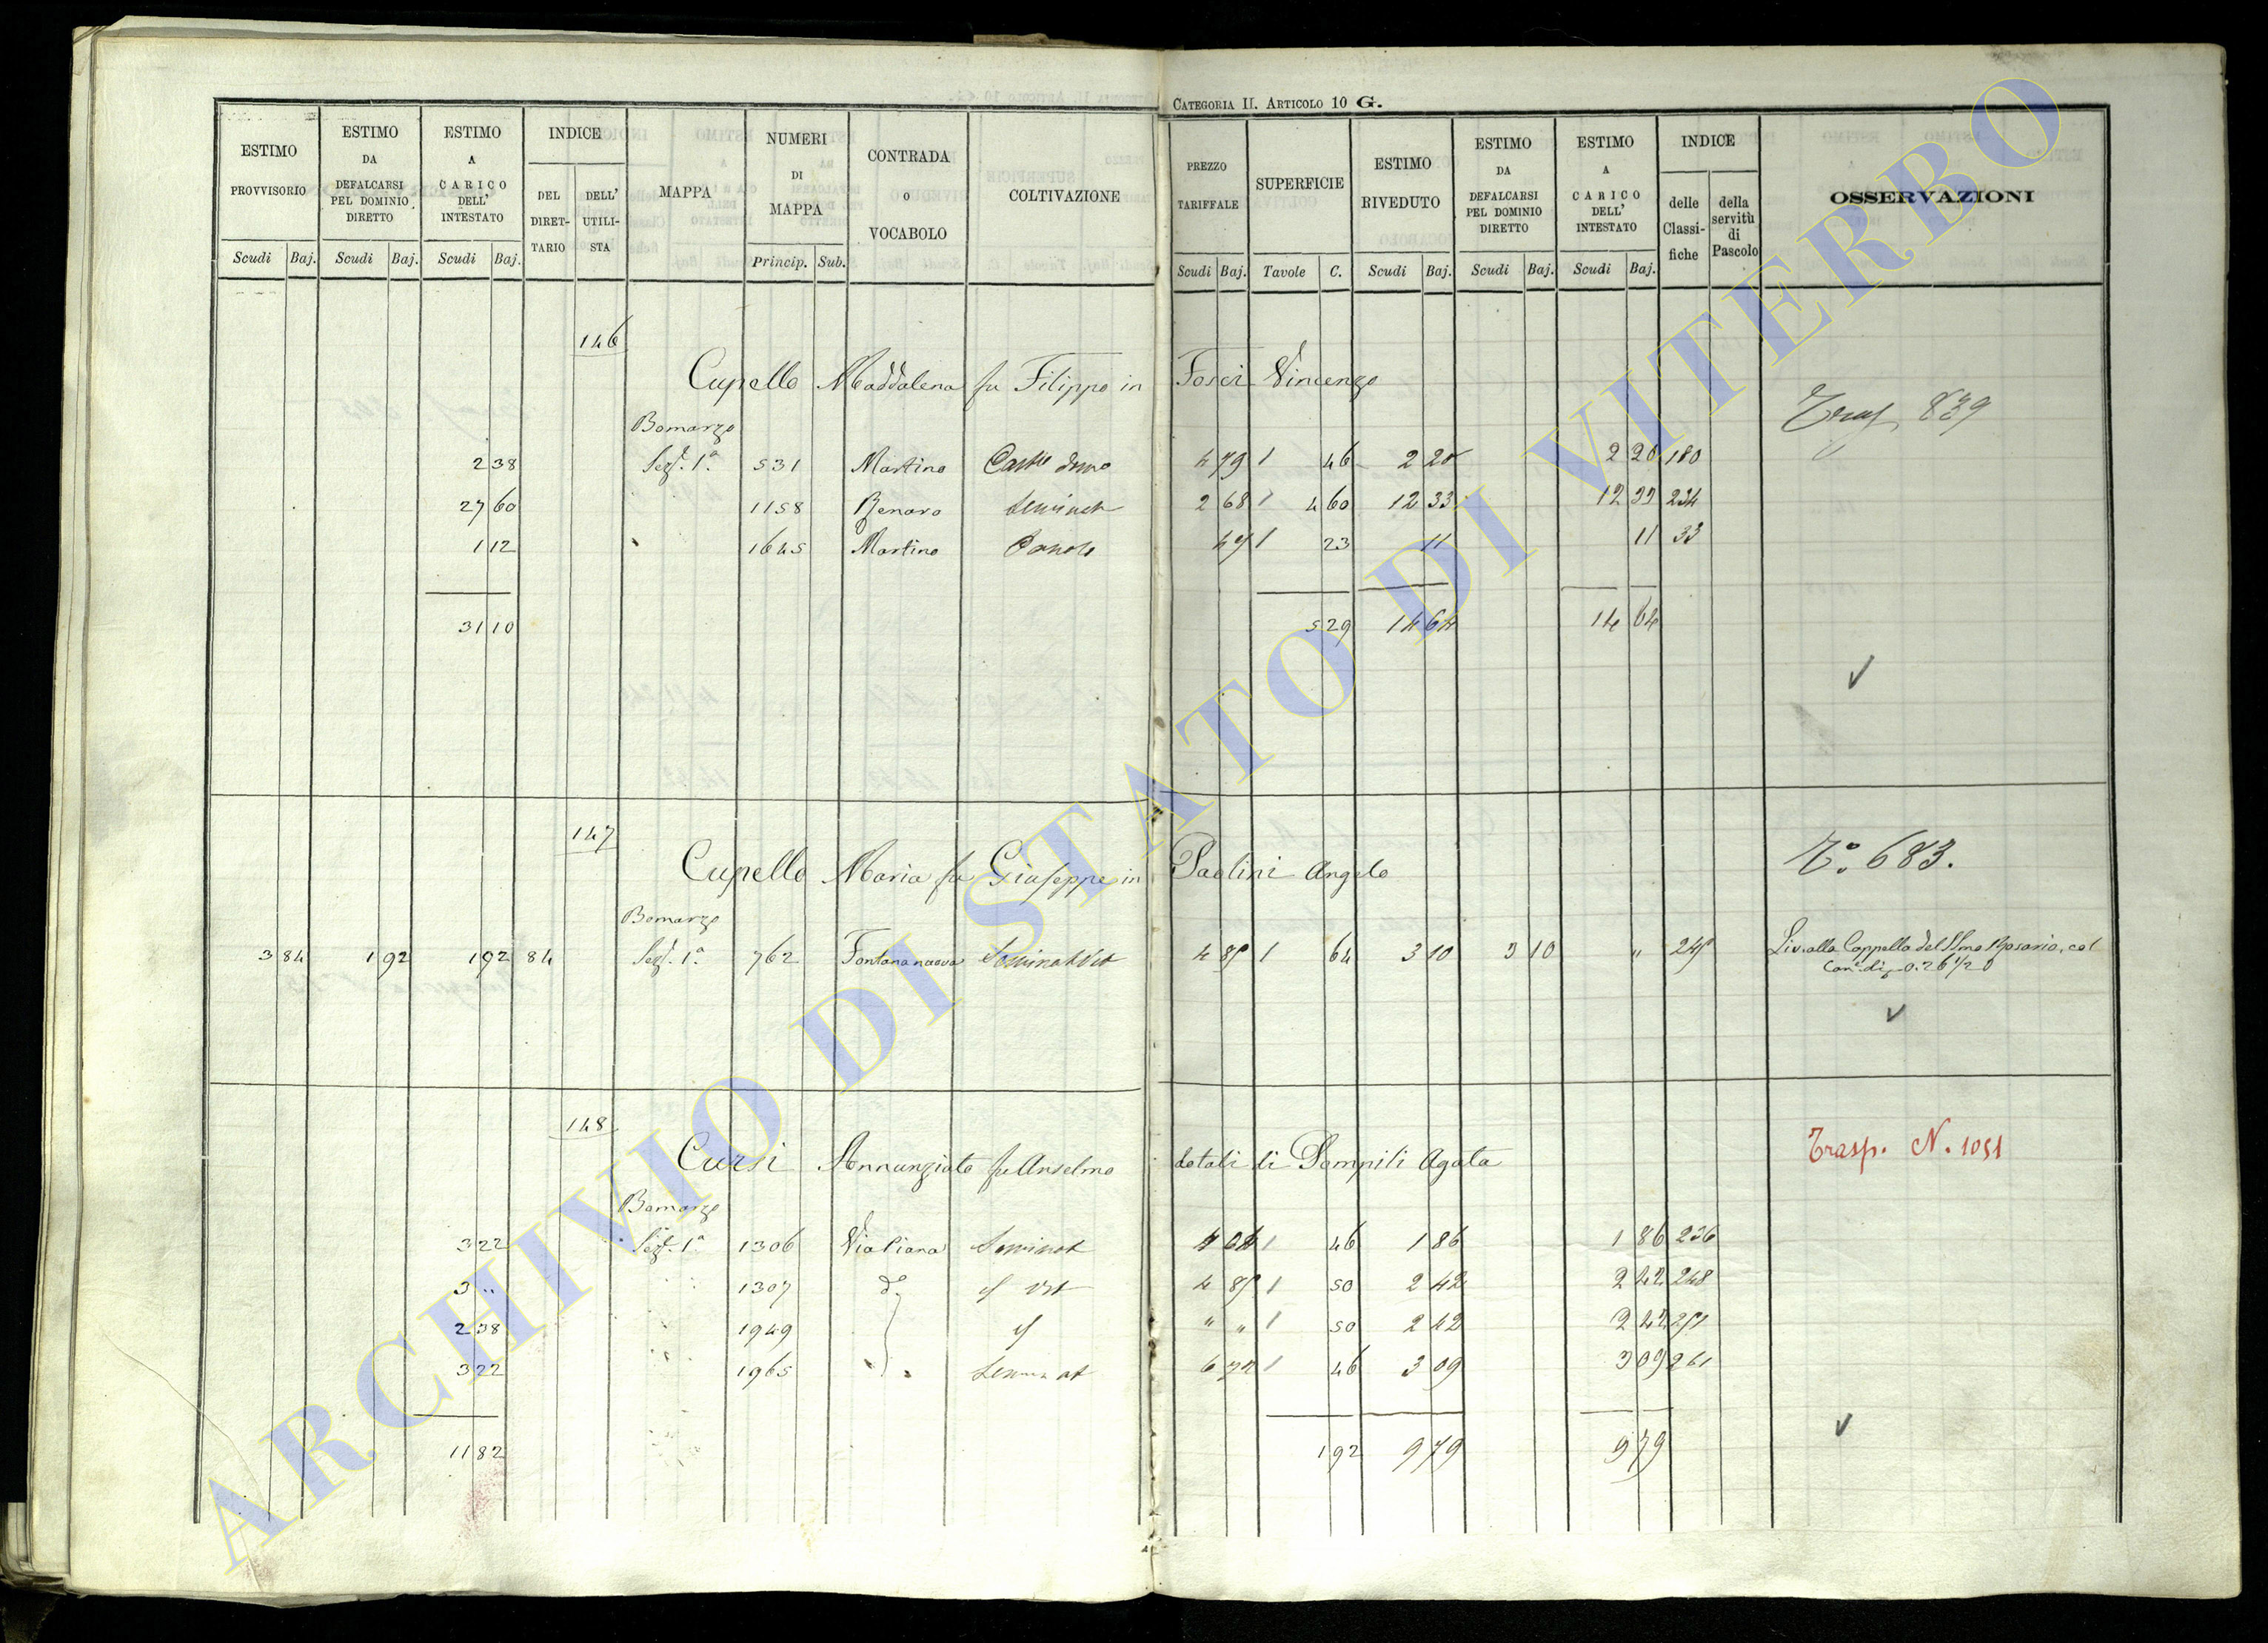 CATEGORIA II. ARTICOLO 10 G.
ESTIMO PROVVISORIO Scudi Baj.
ESTIMO DA DEFALCARSI PEL DOMINIO DIRETTO Scudi Baj.
ESTIMO A CARICO DELL' INTESTATO Scudi Baj.
INDICE DEL DIRETTARIO DELL' UTILISTA
MAPPA
NUMERI DI MAPPA Princip. Sub.
CONTRADA o VOCABOLO
COLTIVAZIONE
PREZZO TARIFFALE Scudi Baj.
SUPERFICIE Tavole C.
ESTIMO RIVEDUTO Scudi Baj.
ESTIMO DA DEFALCARSI PEL DOMINIO DIRETTO Scudi Baj.
ESTIMO A CARICO DELL' INTESTATO Scudi Baj.
INDICE delle Classifiche della servitù di Pascolo
OSSERVAZIONI
146
Cupello Maddalena fu Filippo in Fosci Vincenzo
839
Bomarzo
2 38 Sez. 1ª 531 Martino 4 79 1 46 2 20 2 20 180
27 60 1158 Benaro Seminat 2 68 1 4 60 12 33 12 33 234
1 12 1645 Martino 47 1 23 11 11 33
31 10 5 29 14 64 14 64
147
Cupello Maria fu Giuseppe in Paolini Angelo
Tº. 683.
Bomarzo
3 84 1 92 1 92 84 Sez. 1ª 762 Fontananuova Seminat Vit 4 85 1 64 3 10 3 10 " Liv. alla Cappella del SSmo Rosario, col
Can. di 0.26 1/2 0
148
Cursi Annunziata fu Anselmo dotali di Pompili Agata
Trasp. N. 1051
Bomarzo
3 22 Sez. 1ª 1306 Via Piana Seminat 4 04 1 46 1 86 1 86 236
3 " 1307 dº 4 85 1 50 2 42 2 42 248
2 38 1949 " " 1 50 2 42 2 42
3 22 1965 Seminat 6 72 1 46 3 09 3 09 261
11 82 1 92 9 79 9 79
ARCHIVIO DI STATO DI VITERBO